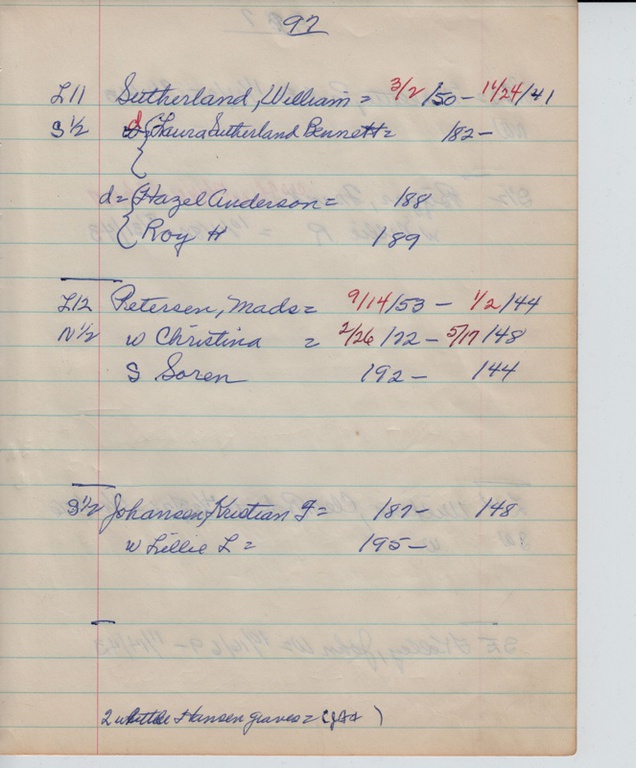 97
L11 Sutherland, William = 3/2/50 - 11/24/41
S 1/2 d { Laura Sutherland Bennett = 182-
{
d = { Hazel Anderson = 188
{ Roy H 189
L12 Petersen, Mads = 9/14/53 - 1/2/44
N 1/2 w Christina = 2/26/72 - 5/17/48
S Soren 192- 144
S 1/2 Johansen, Kristian F = 187- 148
w Lillie L = 195-
2 Hansen graves =